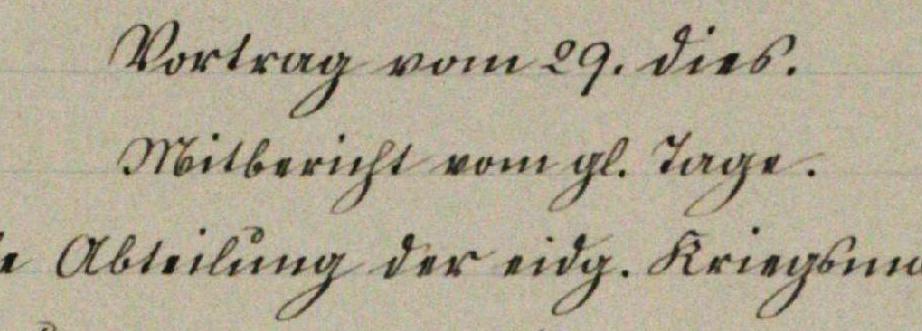 Vortrag vom 29. dies.
Mitbericht vom gl. Tage.
Abteilung der eidg.